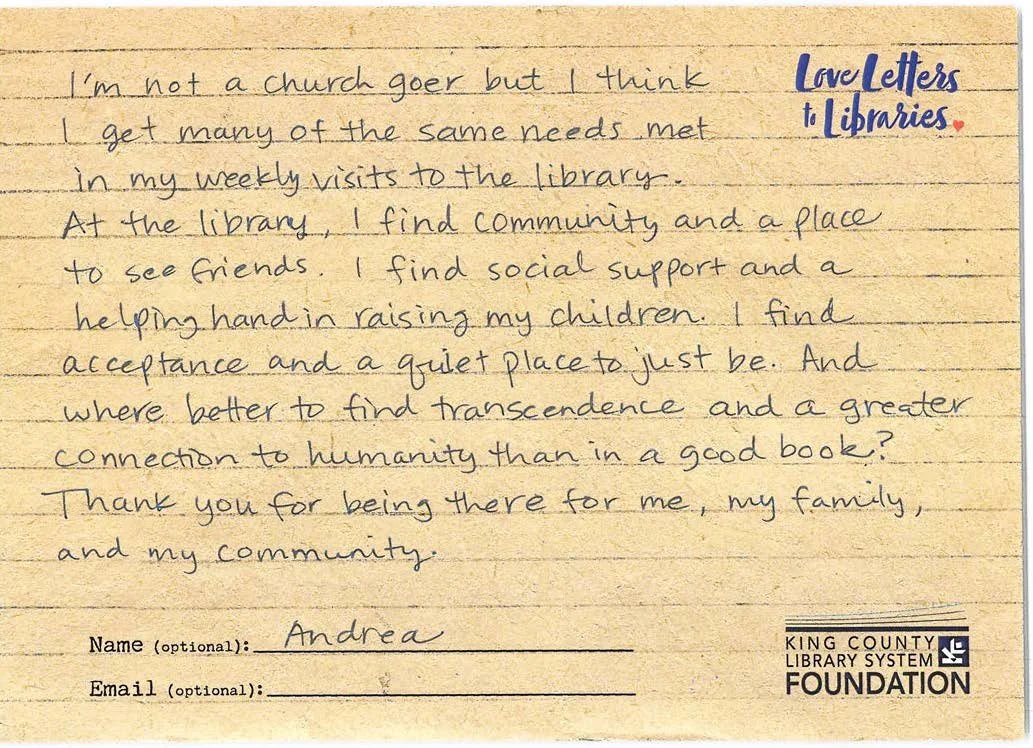 I'm not a church goer but I think
I get many of the same needs met
in my weekly visits to the library.
At the library, I find community and a place
to see friends. I find social support and a
helping hand in raising my children. I find
acceptance and a quiet place to just be. And
where better to find transcendence and a greater
connection to humanity than in a good book?
Thank you for being there for me, my family,
and my community.
Love Letters
to Libraries.
Name (optional): Andrea
Email (optional):
KING COUNTY
LIBRARY SYSTEM
FOUNDATION